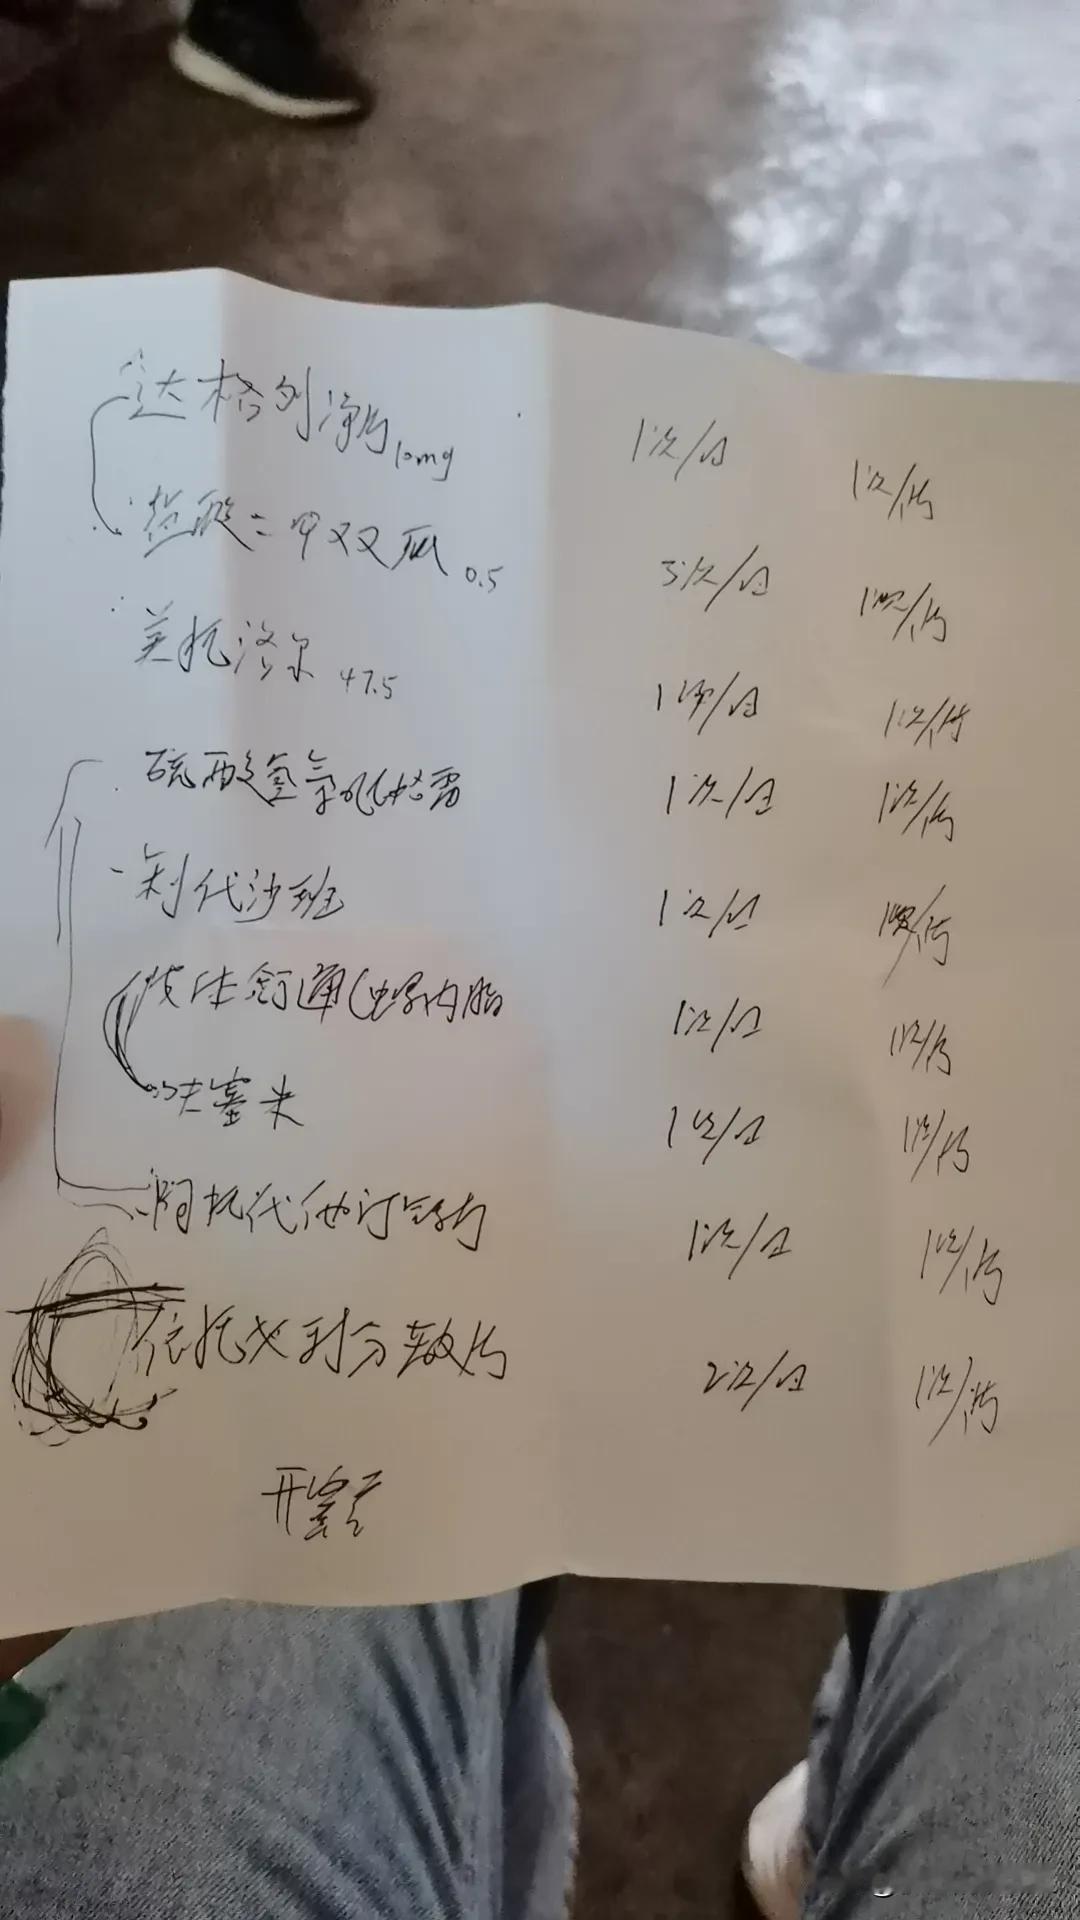 达格列净片 10mg 1次/日 1次/片
盐酸二甲双瓜 0.5 3次/日 1次/片
美托洛尔 47.5 1次/日 1次/片
硫酸氢氯吡格雷 1次/日 1次/片
利代沙班 1次/日 1次/片
螺内脂 1次/日 1次/片
呋塞米 1次/日 1次/片
阿托代他汀钙片 1次/日 1次/片
依托 分散片 2次/日 1次/片
开塞